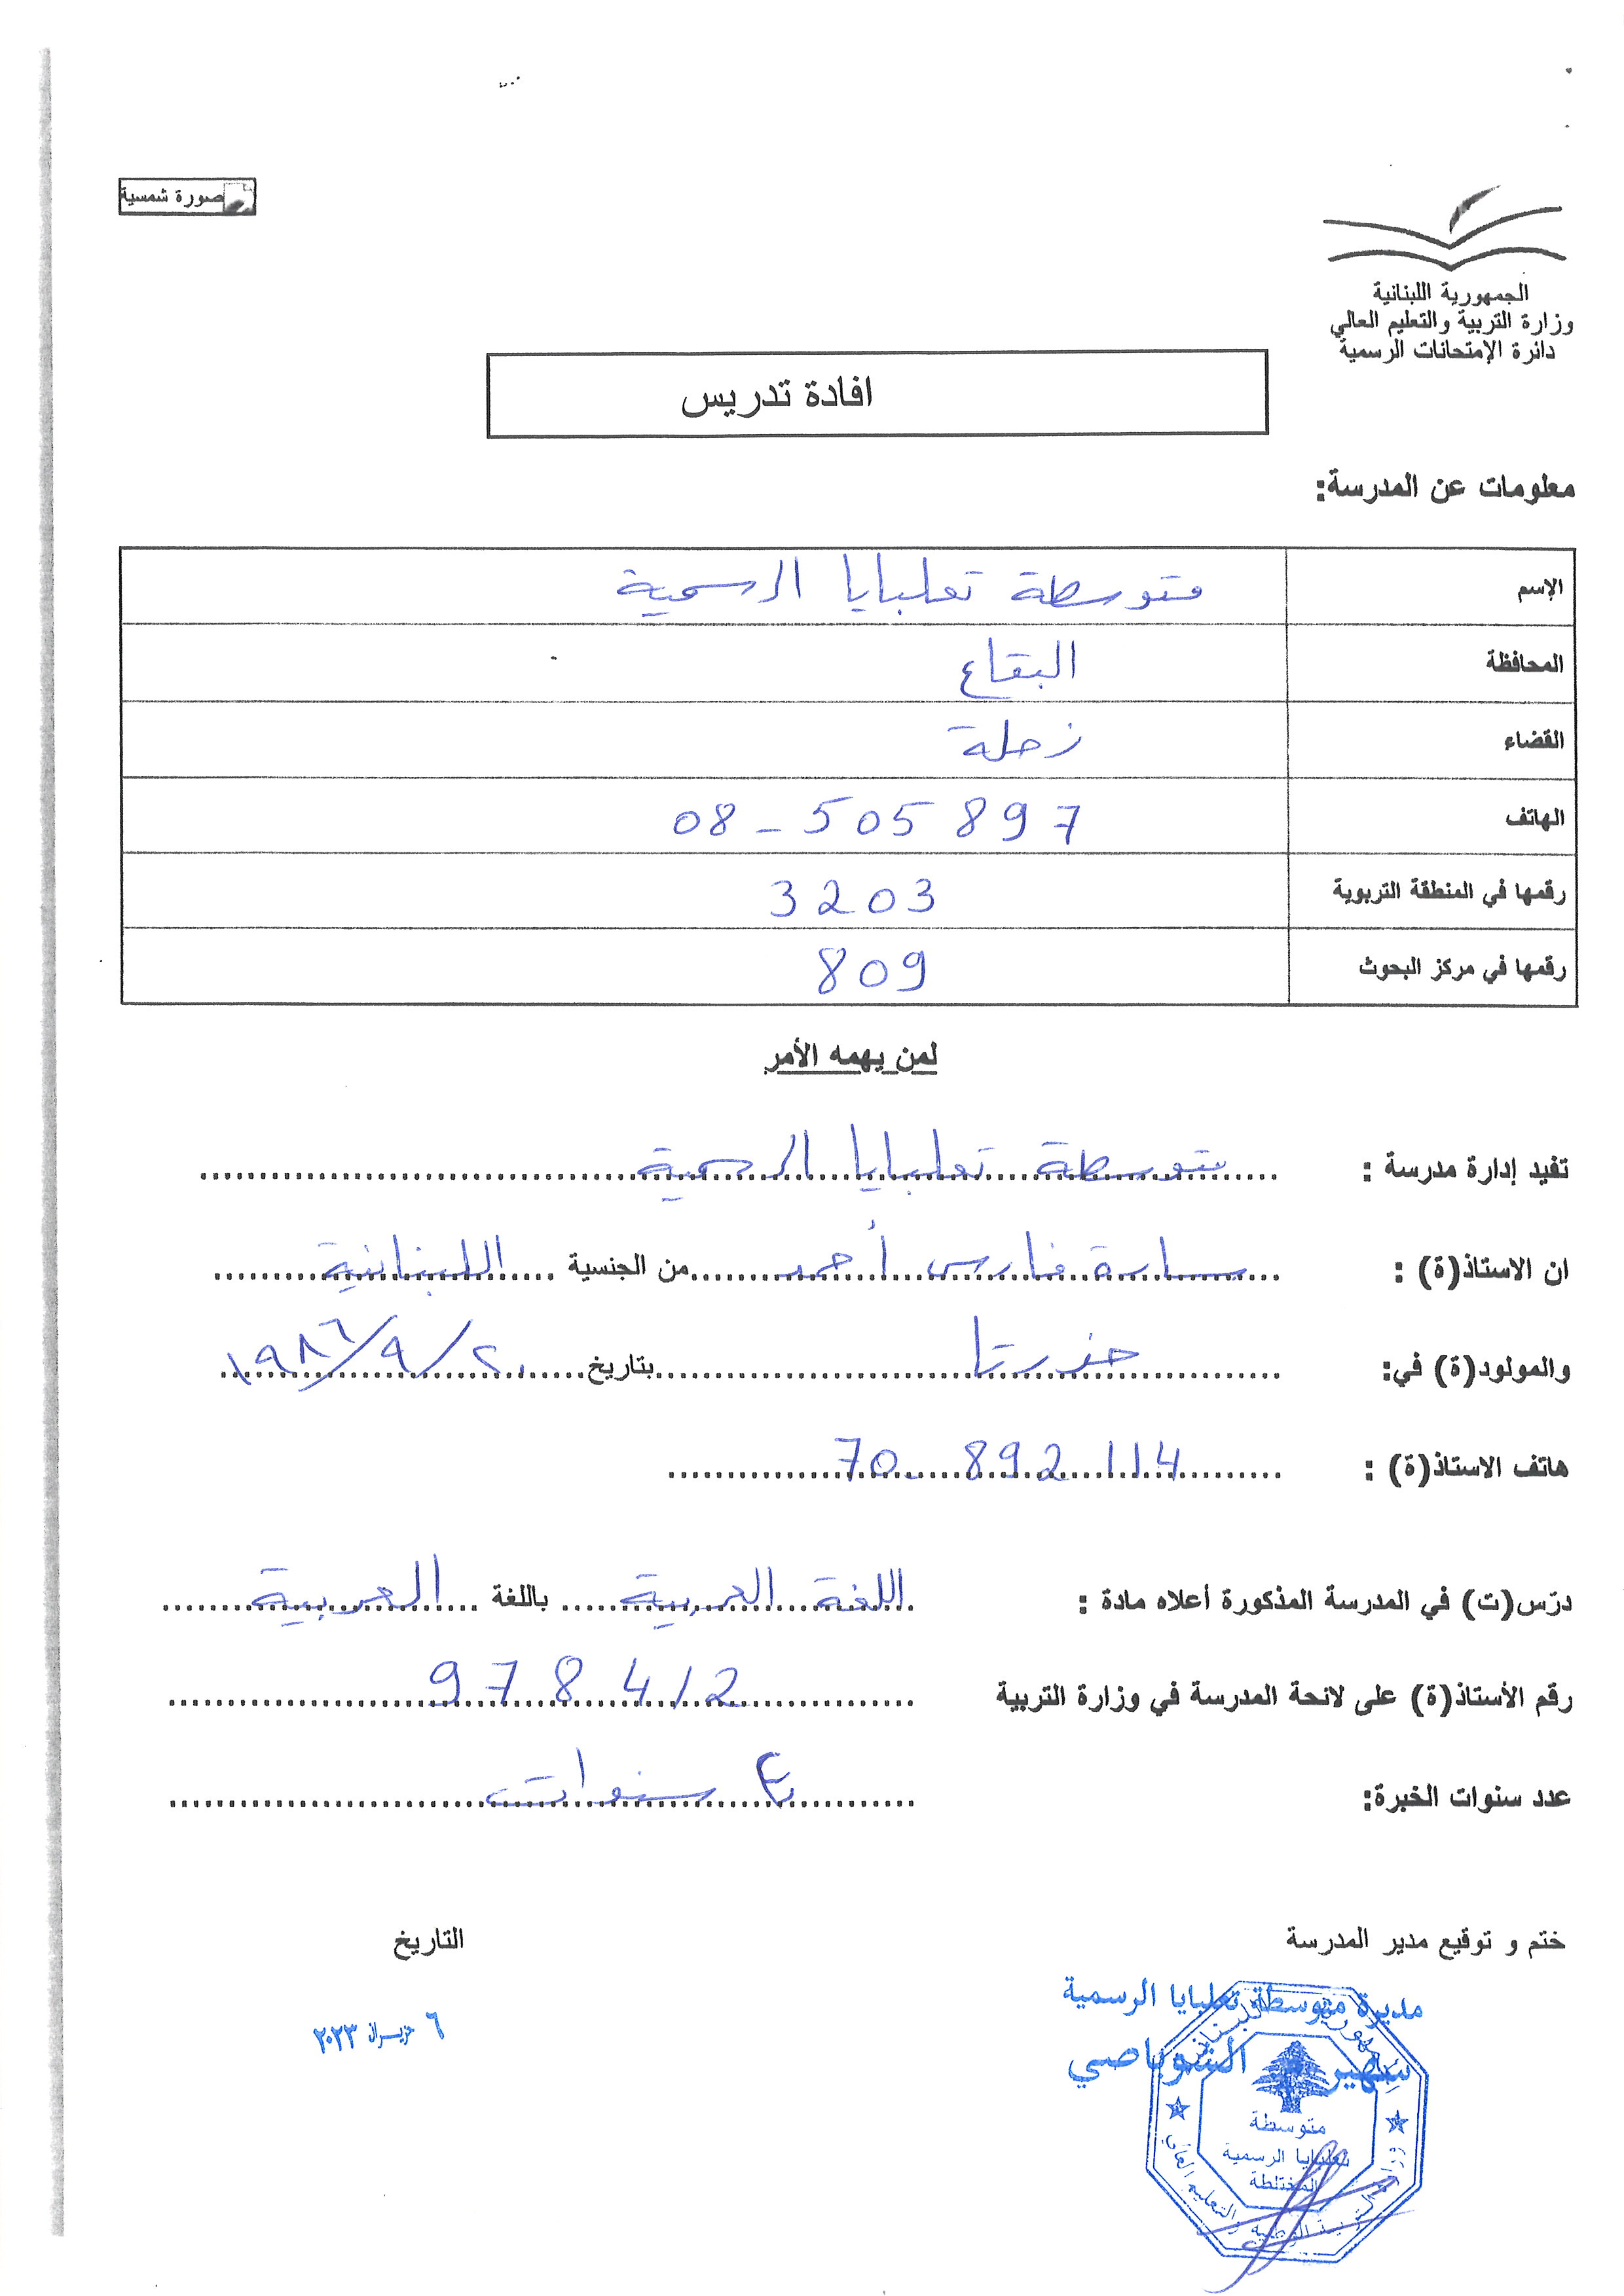 صورة شمسية
الجمهورية اللبنانية
وزارة التربية والتعليم العالي
دائرة الإمتحانات الرسمية
افادة تدريس
معلومات عن المدرسة:
الإسم متوسطة تعلبايا الرسمية
المحافظة البقاع
القضاء زحلة
الهاتف 08-505897
رقمها في المنطقة التربوية 3203
رقمها في مركز البحوث 809
لمن يهمه الأمر
تفيد إدارة مدرسة : متوسطة تعلبايا الرسمية
ان الاستاذ(ة) : سارة فارس أحمد من الجنسية اللبنانية
والمولود(ة) في: حزرتا بتاريخ ٢٠/٩/١٩٨٦
هاتف الاستاذ(ة) : 70-892114
درّس(ت) في المدرسة المذكورة أعلاه مادة : اللغة العربية باللغة العربية
رقم الأستاذ(ة) على لائحة المدرسة في وزارة التربية 9784/2
عدد سنوات الخبرة: ٤ سنوات
ختم و توقيع مدير المدرسة التاريخ
مديرة متوسطة تعلبايا الرسمية
سهير الشوباصي
٦ حزيران ٢٠٢٣
متوسطة
تعلبايا الرسمية
المختلطة